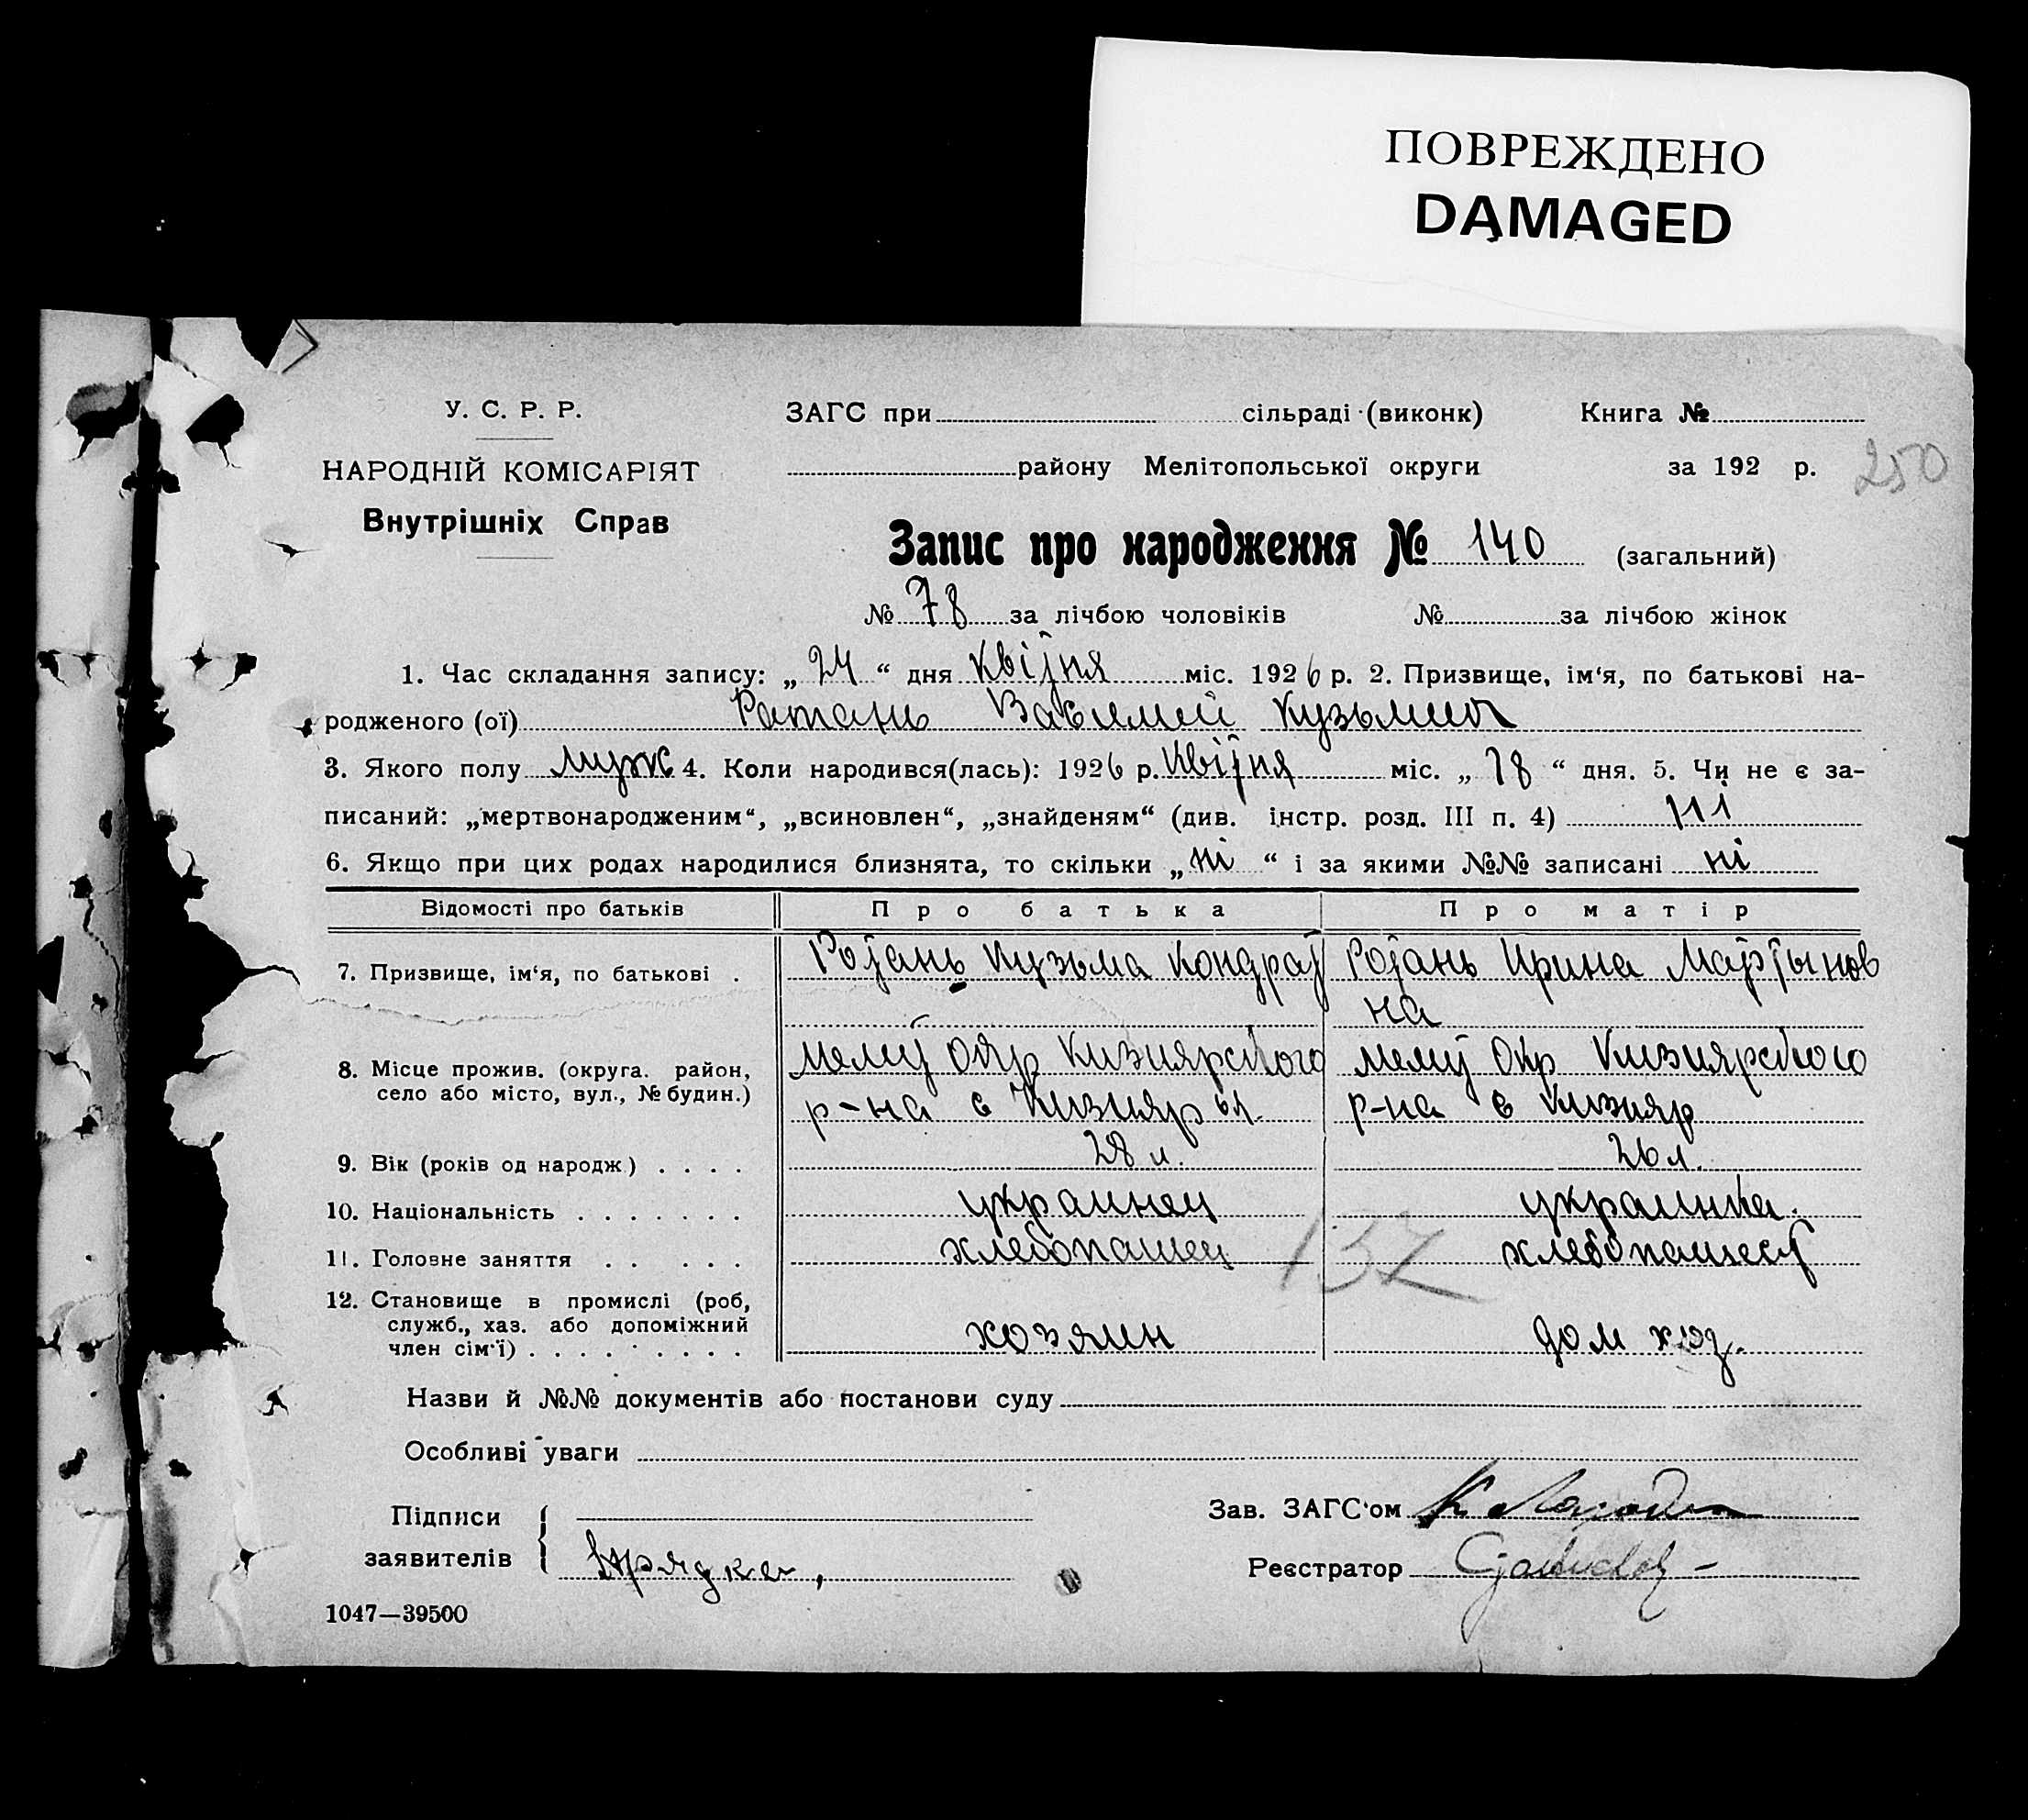 ПОВРЕЖДЕНО
DAMAGED
У. С. Р. Р.
НАРОДНІЙ КОМІСАРІЯТ
Внутрішніх Справ
ЗАГС при сільраді (виконк)
Книга №
району Мелітопольської округи
за 192 р.
250
Запис про народження № 140 (загальний)
№ 78 за лічбою чоловіків № за лічбою жінок
1. Час складання запису: „ 24 “ дня квітня міс. 1926 р. 2. Призвище, ім‘я, по батькові на-
родженого (ої) Ратань Василий Кузьмич
3. Якого полу муж 4. Коли народився(лась): 1926 р. квітня міс. „ 18 “ дня. 5. Чи не є за-
писаний: „мертвонародженим“, „всиновлен“, „знайденям“ (див. інстр. розд. III п. 4) ні
6. Якщо при цих родах народилися близнята, то скільки „ ні “ і за якими №№ записані ні
Відомості про батьків Про батька Про матір
7. Призвище, ім‘я, по батькові . Ротань Кузьма Кондрат Ротань Ирина Мартынов
на
8. Місце прожив. (округа. район, Мелит Окр Кизиярского Мелит Окр Кизиярского
село або місто, вул., № будин.) р-на с Кизияр р-на с Кизияр
9. Вік (років од народж) . . . . 28 л. 26 л.
10. Національність . . . . . . . украинец украинка.
11. Головне заняття . . . . . хлебопашец хлебопашест
137
12. Становище в промислі (роб,
служб., хаз. або допоміжний
член сім‘ї) . . . . . . . . . хозяин дом хоз.
Назви й №№ документів або постанови суду
Особливі уваги
Підписи
заявителів
Зав. ЗАГС‘ом
Реєстратор
1047—39500